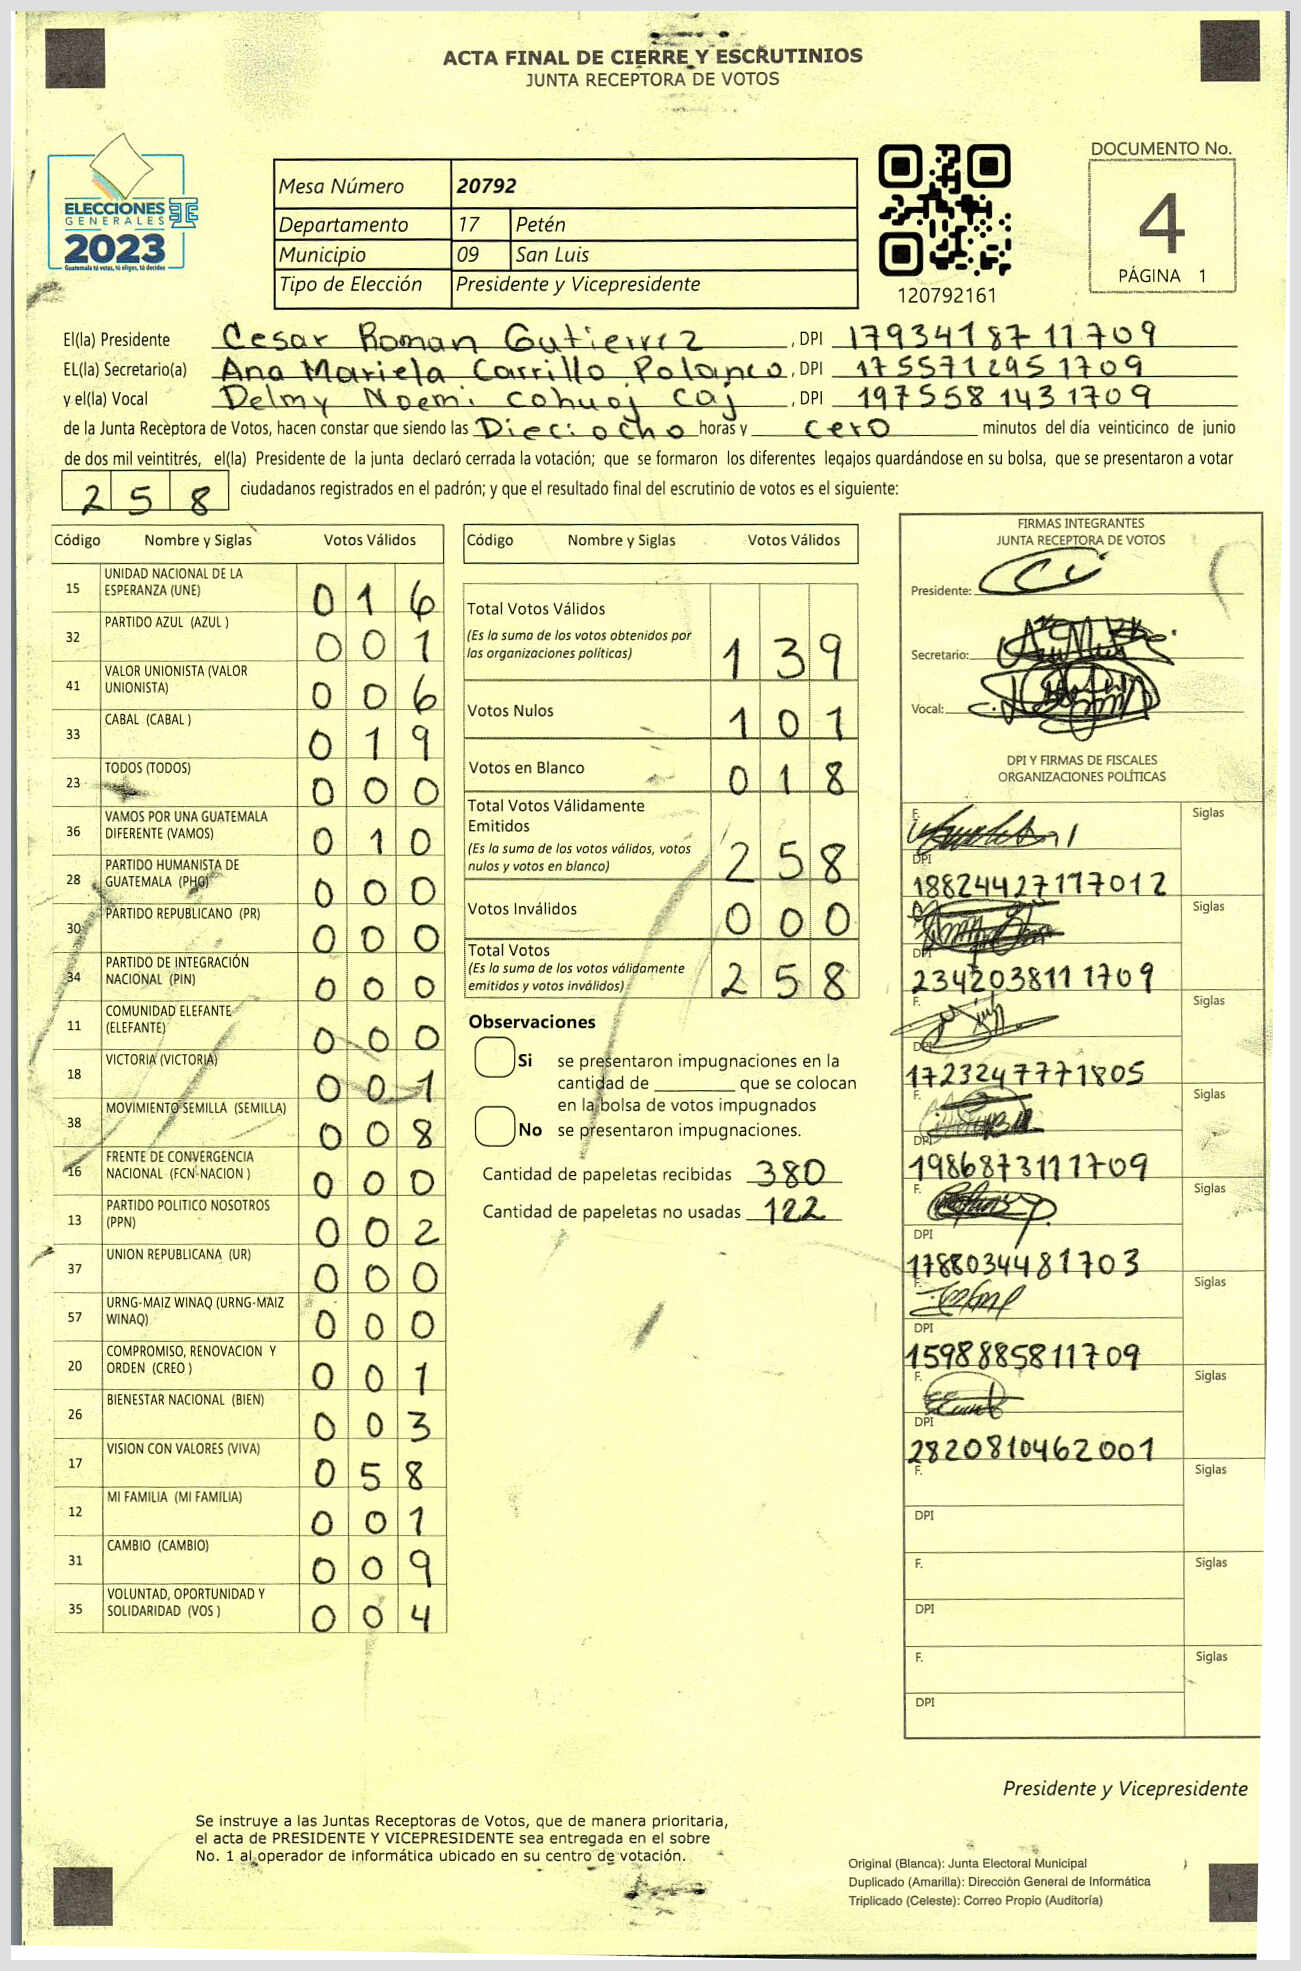 ACTA FINAL DE CIERRE Y ESCRUTINIOS
JUNTA RECEPTORA DE VOTOS
ELECCIONES
GENERALES
2023
Guatemala tú votas, tú eliges, tú decides
Mesa Número 20792
Departamento 17 Petén
Municipio 09 San Luis
Tipo de Elección Presidente y Vicepresidente
120792161
DOCUMENTO No.
4
PÁGINA 1
El(la) Presidente Cesar Roman Gutierrez, DPI 1793418711709
EL(la) Secretario(a) Ana Mariela Carrillo Polanco, DPI 1755712951709
y el(la) Vocal Delmy Noemi Cohuoj Caj, DPI 1975581431709
de la Junta Receptora de Votos, hacen constar que siendo las Dieciocho horas y cero minutos del día veinticinco de junio
de dos mil veintitrés, el(la) Presidente de la junta declaró cerrada la votación; que se formaron los diferentes legajos guardándose en su bolsa, que se presentaron a votar
258 ciudadanos registrados en el padrón; y que el resultado final del escrutinio de votos es el siguiente:
Código Nombre y Siglas Votos Válidos
15 UNIDAD NACIONAL DE LA ESPERANZA (UNE) 016
32 PARTIDO AZUL (AZUL ) 001
41 VALOR UNIONISTA (VALOR UNIONISTA) 006
33 CABAL (CABAL ) 019
23 TODOS (TODOS) 000
36 VAMOS POR UNA GUATEMALA DIFERENTE (VAMOS) 010
28 PARTIDO HUMANISTA DE GUATEMALA (PHG) 000
30 PARTIDO REPUBLICANO (PR) 000
34 PARTIDO DE INTEGRACIÓN NACIONAL (PIN) 000
11 COMUNIDAD ELEFANTE (ELEFANTE) 000
18 VICTORIA (VICTORIA) 001
38 MOVIMIENTO SEMILLA (SEMILLA) 008
16 FRENTE DE CONVERGENCIA NACIONAL (FCN-NACION ) 000
13 PARTIDO POLITICO NOSOTROS (PPN) 002
37 UNION REPUBLICANA (UR) 000
57 URNG-MAIZ WINAQ (URNG-MAIZ WINAQ) 000
20 COMPROMISO, RENOVACION Y ORDEN (CREO ) 001
26 BIENESTAR NACIONAL (BIEN) 003
17 VISION CON VALORES (VIVA) 058
12 MI FAMILIA (MI FAMILIA) 001
31 CAMBIO (CAMBIO) 009
35 VOLUNTAD, OPORTUNIDAD Y SOLIDARIDAD (VOS ) 004
Código Nombre y Siglas Votos Válidos
Total Votos Válidos 139
(Es la suma de los votos obtenidos por
las organizaciones políticas)
Votos Nulos 101
Votos en Blanco 018
Total Votos Válidamente
Emitidos 258
(Es la suma de los votos válidos, votos
nulos y votos en blanco)
Votos Inválidos 000
Total Votos 258
(Es la suma de los votos válidamente
emitidos y votos inválidos)
Observaciones
Si se presentaron impugnaciones en la
cantidad de ________ que se colocan
en la bolsa de votos impugnados
No se presentaron impugnaciones.
Cantidad de papeletas recibidas 380
Cantidad de papeletas no usadas 122
FIRMAS INTEGRANTES
JUNTA RECEPTORA DE VOTOS
Presidente:
Secretario:
Vocal:
DPI Y FIRMAS DE FISCALES
ORGANIZACIONES POLÍTICAS
F. Siglas
DPI
1882442717012
Siglas
DPI
2342038111709
F. Siglas
DPI
1723247771805
F. Siglas
DPI
1986873111709
F. Siglas
DPI
1788034481703
F. Siglas
DPI
1598885811709
F. Siglas
DPI
2820810462001
F. Siglas
DPI
F. Siglas
DPI
F. Siglas
DPI
Presidente y Vicepresidente
Se instruye a las Juntas Receptoras de Votos, que de manera prioritaria,
el acta de PRESIDENTE Y VICEPRESIDENTE sea entregada en el sobre
No. 1 al operador de informática ubicado en su centro de votación.
Original (Blanca): Junta Electoral Municipal
Duplicado (Amarilla): Dirección General de Informática
Triplicado (Celeste): Correo Propio (Auditoría)